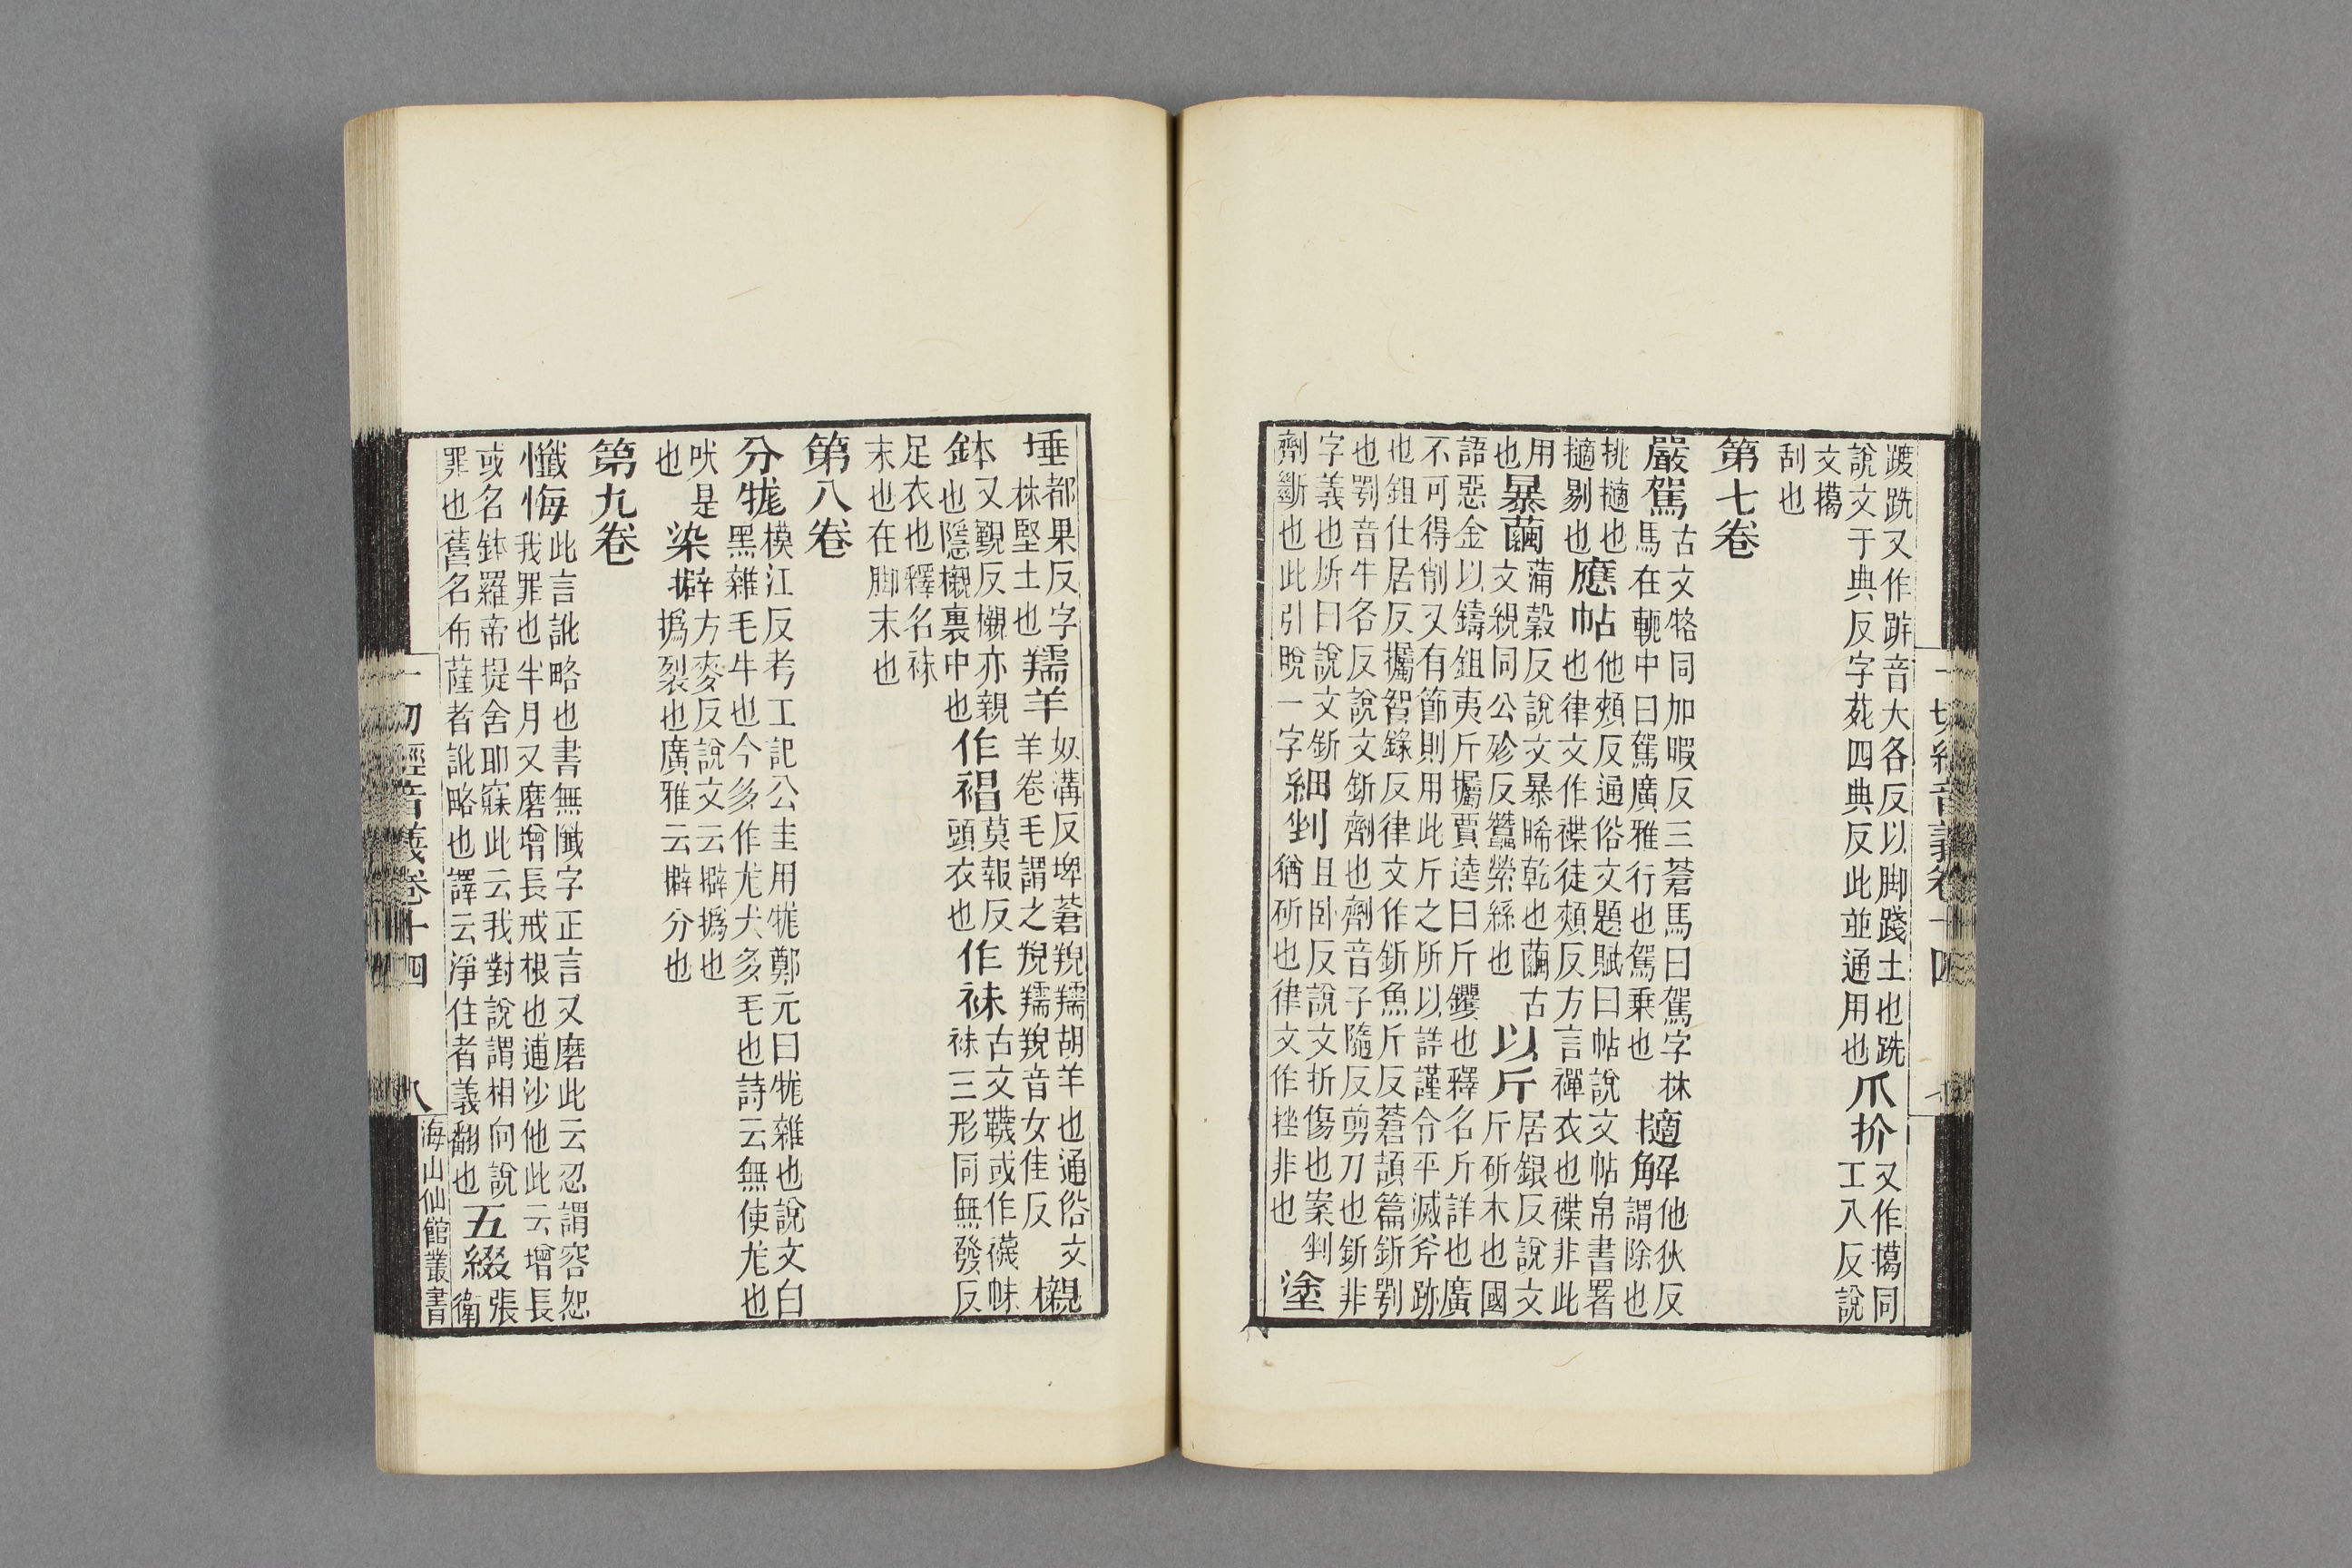 一切經音義卷十四
踱跣又作跰音大各反以脚踐土也跣說文于典反字苑四典反此並通用也爪扴又作擖同工八反說
文擖刮也
第七卷
嚴駕古文㸵同加暇反三蒼馬曰駕字林馬在軛中曰駕廣雅行也駕乗也擿解他狄反謂除也
挑擿也擿剔也應帖他頰反通俗文題賦曰帖說文帖帛書署也律文作褋徒頰反方言襌衣也褋非此
用也暴繭蒲穀反說文暴晞乾也繭古文絸同公殄反蠶縈絲也以斤居銀反說文斤斫木也國
語惡金以鑄鉏夷斤斸賈逵曰斤钁也釋名斤詳也廣不可得削又有節則用此斤之所以詳謹令平滅斧跡
也鉏仕居反斸智錄反律文作釿魚斤反蒼頡篇釿剭也剭音牛各反說文釿劑也劑音子隨反剪刀也釿非
字義也所曰說文釿劑斷也此引脫一字細剉且卧反說文折傷也案剉猶斫也律文作挫非也塗
埵都果反字林堅土也羺羊奴溝反埤蒼䍲羺胡羊也通俗文羊卷毛謂之䍲羺䍲音女佳反櫬
鉢又覲反櫬亦親也隱櫬裏中也作莫報反頭衣也作袜古文韈或作襪帓袜三形同無發反
足衣也釋名袜末也在脚末也
第八卷
分牻模江反考工記公圭用牻鄭元曰牻雜也說文白黑雜毛牛也今多作尨犬多毛也詩云無使尨也
吠是也染擗方麥反說文云擗撝也撝裂也廣雅云擗分也
第九卷
懺悔此言訛略也書無懺字正言叉磨此云忍謂容恕我罪也半月叉磨增長戒根也逋沙他此云增長
或名鉢羅帝提舍耶寐此云我對說謂相向說罪也舊名布薩者訛略也譯云淨住者義翻也五綴張衛
一切經音義卷十四 八 海山仙館叢書